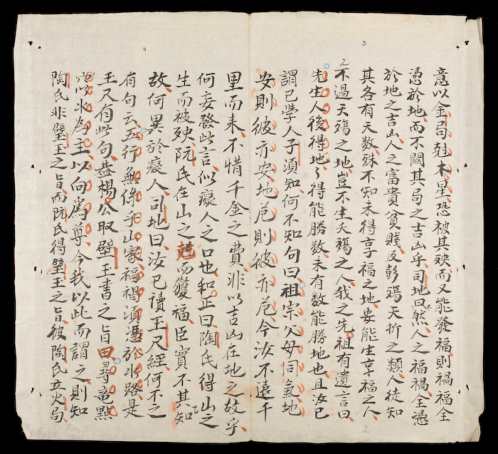 意以金局尅木星恐被其殃而又能發福則禍福全
憑於地而不關其局之吉凶乎司地曰然人之福禍全憑
於地之吉凶人之富貴貧賤及彭殤夭折之類人徒知
其各有天數殊不知未得享福之地安能生享福之人
不過夭殤之地豈不生夭殤之人我之先祖有遺言曰
先生人後得地々得能勝数未有数能勝地也且汝已
謂已學人子須知何不知句曰祖宗父母同氣地
安則彼亦安地危則彼亦危今汝不遠千
里而来不惜千金之費非以吉凶在地之故乎
何妄發此言似癡人之口也和正曰陶氏得山之
生而被殃阮氏在山之尅而獲福臣實不其知
故何異於癡人司地曰汝已讀玉尺經何不之
有句云五行無停於山家福禍須憑於水路是
玉尺有此句盖楊公取璧玉書之旨曰尋竜點
穴以水為主以向為尊今我以此而謂之則知
陶氏非璧玉之旨而阮氏得璧玉之旨彼陶氏立火局